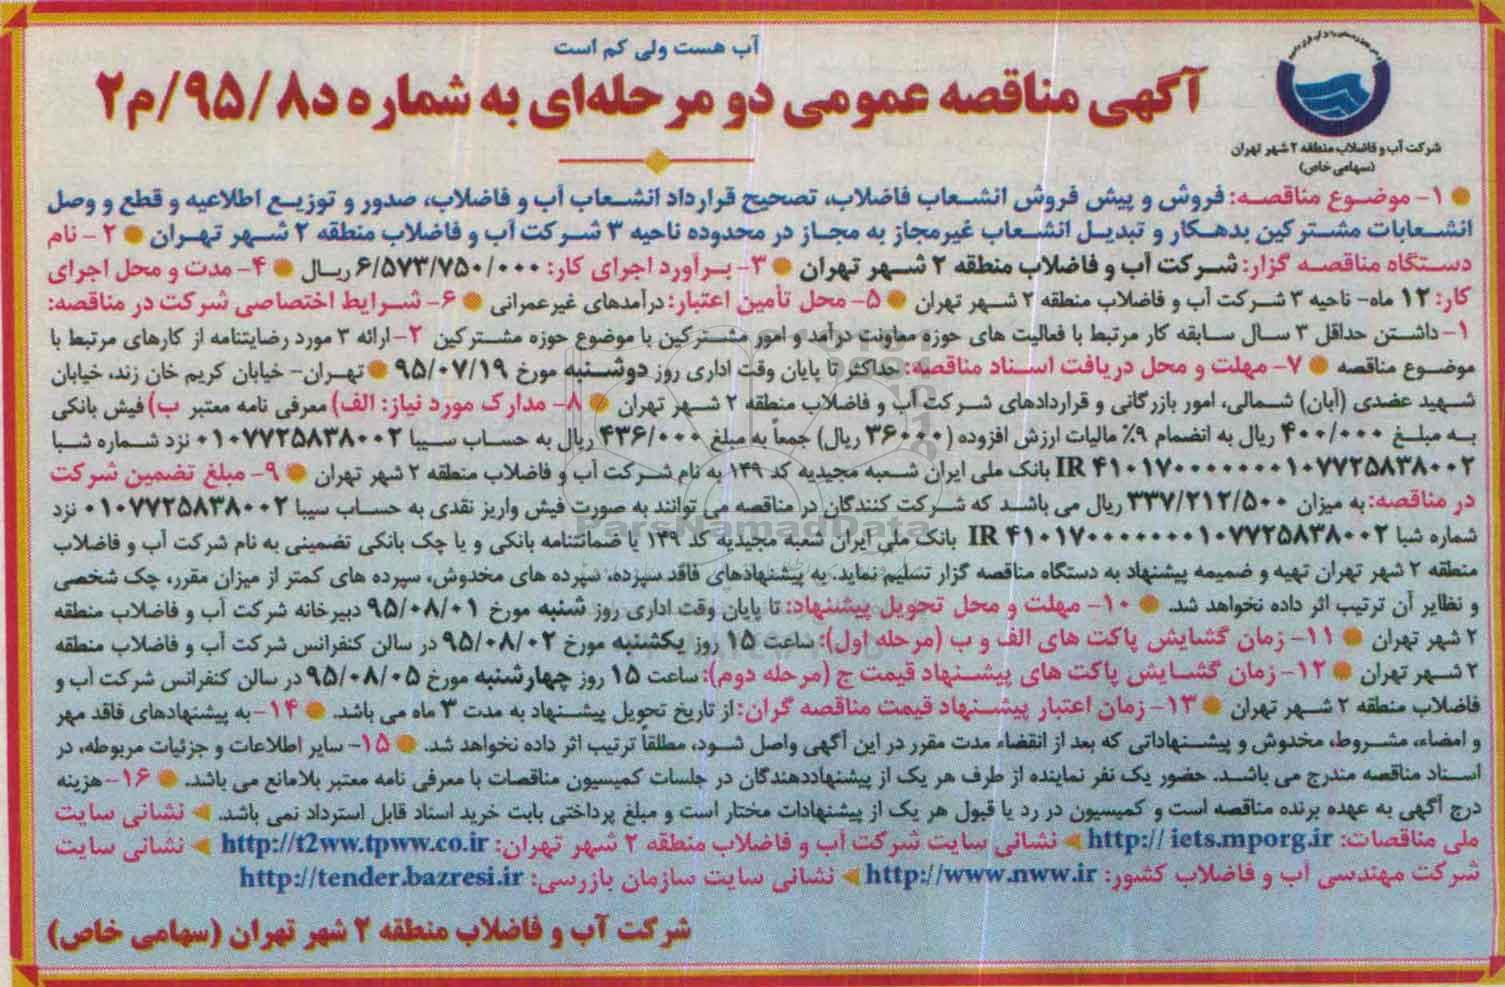 آب هست ولی کم است
آگهی مناقصه عمومی دو مرحله‌ای به شماره د۹۵/۸/م۲
شرکت آب و فاضلاب منطقه ۲ شهر تهران
(سهامی خاص)
۱- موضوع مناقصه: فروش و پیش فروش انشعاب فاضلاب، تصحیح قرارداد انشعاب آب و فاضلاب، صدور و توزیع اطلاعیه و قطع و وصل
انشعابات مشترکین بدهکار و تبدیل انشعاب غیرمجاز به مجاز در محدوده ناحیه ۳ شرکت آب و فاضلاب منطقه ۲ شهر تهران ۲- نام
دستگاه مناقصه گزار: شرکت آب و فاضلاب منطقه ۲ شهر تهران ۳- برآورد اجرای کار: ۶/۵۷۳/۷۵۰/۰۰۰ ریال ۴- مدت و محل اجرای
کار: ۱۲ ماه- ناحیه ۳ شرکت آب و فاضلاب منطقه ۲ شهر تهران ۵- محل تأمین اعتبار: درآمدهای غیرعمرانی ۶- شرایط اختصاصی شرکت در مناقصه:
۱- داشتن حداقل ۳ سال سابقه کار مرتبط با فعالیت های حوزه معاونت درآمد و امور مشترکین با موضوع حوزه مشترکین ۲- ارائه ۳ مورد رضایتنامه از کارهای مرتبط با
موضوع مناقصه ۷- مهلت و محل دریافت اسناد مناقصه: حداکثر تا پایان وقت اداری روز دوشنبه مورخ ۹۵/۰۷/۱۹ تهران- خیابان کریم خان زند، خیابان
شهید عضدی (آبان) شمالی، امور بازرگانی و قراردادهای شرکت آب و فاضلاب منطقه ۲ شهر تهران ۸- مدارک مورد نیاز: الف) معرفی نامه معتبر ب) فیش بانکی
به مبلغ ۴۰۰/۰۰۰ ریال به انضمام ۹٪ مالیات ارزش افزوده (۳۶۰۰۰ ریال) جمعاً به مبلغ ۴۳۶/۰۰۰ ریال به حساب سیبا ۰۱۰۷۷۲۵۸۳۸۰۰۲ نزد شماره شبا
IR ۴۱۰۱۷۰۰۰۰۰۰۰۰۱۰۷۷۲۵۸۳۸۰۰۲ بانک ملی ایران شعبه مجیدیه کد ۱۴۹ به نام شرکت آب و فاضلاب منطقه ۲ شهر تهران ۹- مبلغ تضمین شرکت
در مناقصه: به میزان ۳۳۷/۲۱۲/۵۰۰ ریال می باشد که شرکت کنندگان در مناقصه می توانند به صورت فیش واریز نقدی به حساب سیبا ۰۱۰۷۷۲۵۸۳۸۰۰۲ نزد
شماره شبا IR ۴۱۰۱۷۰۰۰۰۰۰۰۰۱۰۷۷۲۵۸۳۸۰۰۲ بانک ملی ایران شعبه مجیدیه کد ۱۴۹ یا ضمانتنامه بانکی و یا چک بانکی تضمینی به نام شرکت آب و فاضلاب
منطقه ۲ شهر تهران تهیه و ضمیمه پیشنهاد به دستگاه مناقصه گزار تسلیم نماید. به پیشنهادهای فاقد سپرده، سپرده های مخدوش، سپرده های کمتر از میزان مقرر، چک شخصی
و نظایر آن ترتیب اثر داده نخواهد شد. ۱۰- مهلت و محل تحویل پیشنهاد: تا پایان وقت اداری روز شنبه مورخ ۹۵/۰۸/۰۱ دبیرخانه شرکت آب و فاضلاب منطقه
۲ شهر تهران ۱۱- زمان گشایش پاکت های الف و ب (مرحله اول): ساعت ۱۵ روز یکشنبه مورخ ۹۵/۰۸/۰۲ در سالن کنفرانس شرکت آب و فاضلاب منطقه
۲ شهر تهران ۱۲- زمان گشایش پاکت های پیشنهاد قیمت ج (مرحله دوم): ساعت ۱۵ روز چهارشنبه مورخ ۹۵/۰۸/۰۵ در سالن کنفرانس شرکت آب و
فاضلاب منطقه ۲ شهر تهران ۱۳- زمان اعتبار پیشنهاد قیمت مناقصه گران: از تاریخ تحویل پیشنهاد به مدت ۳ ماه می باشد. ۱۴- به پیشنهادهای فاقد مهر
و امضاء، مشروط، مخدوش و پیشنهاداتی که بعد از انقضاء مدت مقرر در این آگهی واصل شود، مطلقاً ترتیب اثر داده نخواهد شد. ۱۵- سایر اطلاعات و جزئیات مربوطه، در
اسناد مناقصه مندرج می باشد. حضور یک نفر نماینده از طرف هر یک از پیشنهاددهندگان در جلسات کمیسیون مناقصات با معرفی نامه معتبر بلامانع می باشد. ۱۶- هزینه
درج آگهی به عهده برنده مناقصه است و کمیسیون در رد یا قبول هر یک از پیشنهادات مختار است و مبلغ پرداختی بابت خرید اسناد قابل استرداد نمی باشد. نشانی سایت
ملی مناقصات: http:// iets.mporg.ir نشانی سایت شرکت آب و فاضلاب منطقه ۲ شهر تهران: http://t2ww.tpww.co.ir نشانی سایت
شرکت مهندسی آب و فاضلاب کشور: http://www.nww.ir نشانی سایت سازمان بازرسی: http://tender.bazresi.ir
شرکت آب و فاضلاب منطقه ۲ شهر تهران (سهامی خاص)
ParsNamadData